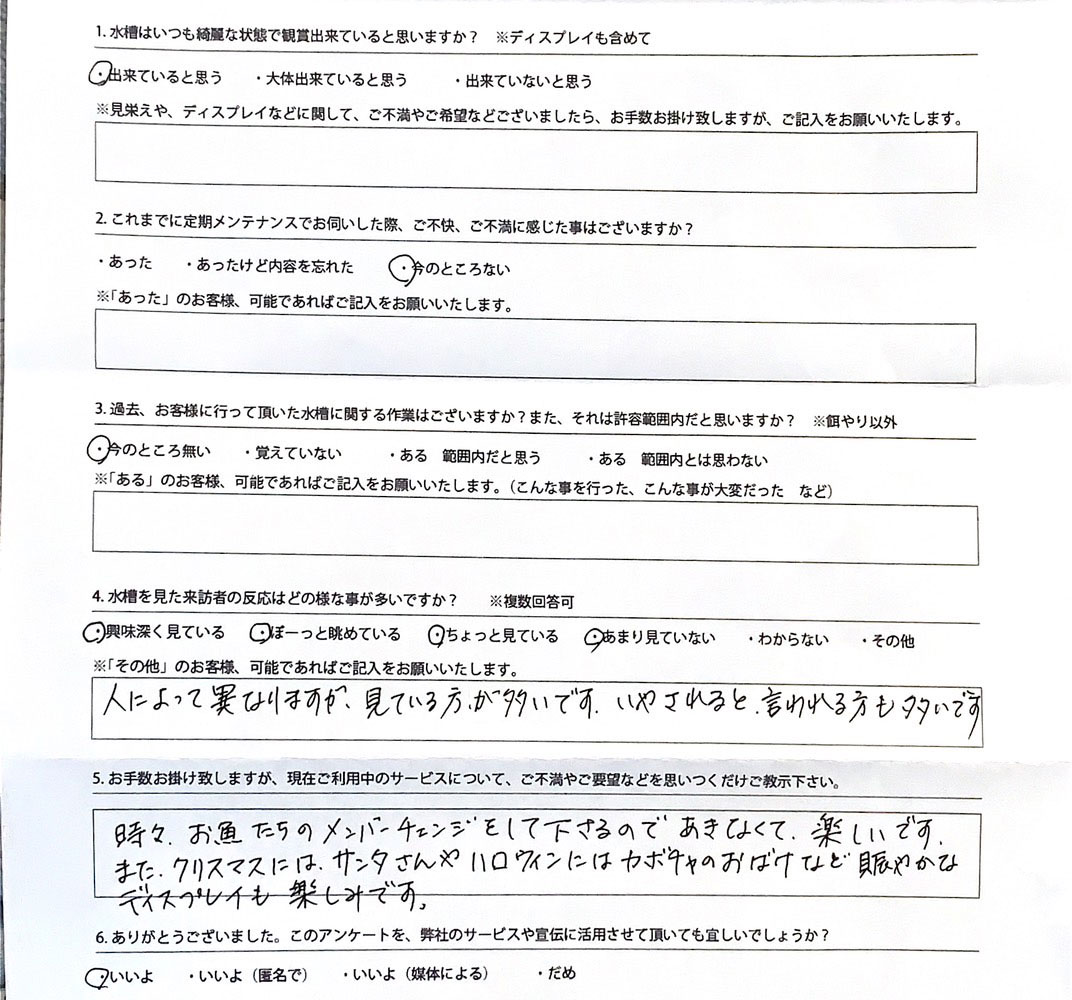 1. 水槽はいつも綺麗な状態で観賞出来ていると思いますか？　※ディスプレイも含めて
・出来ていると思う　・大体出来ていると思う　・出来ていないと思う
※見栄えや、ディスプレイなどに関して、ご不満やご希望などございましたら、お手数お掛け致しますが、ご記入をお願いいたします。
2. これまでに定期メンテナンスでお伺いした際、ご不快、ご不満に感じた事はございますか？
・あった　・あったけど内容を忘れた　・今のところない
※「あった」のお客様、可能であればご記入をお願いいたします。
3. 過去、お客様に行って頂いた水槽に関する作業はございますか？また、それは許容範囲内だと思いますか？　※餌やり以外
・今のところ無い　・覚えていない　・ある　範囲内だと思う　・ある　範囲内とは思わない
※「ある」のお客様、可能であればご記入をお願いいたします。（こんな事を行った、こんな事が大変だった　など）
4. 水槽を見た来訪者の反応はどの様な事が多いですか？　※複数回答可
・興味深く見ている　・ぼーっと眺めている　・ちょっと見ている　・あまり見ていない　・わからない　・その他
※「その他」のお客様、可能であればご記入をお願いいたします。
人によって異なりますが、見ている方が多いです。いやされると、言われる方も多いです
5. お手数お掛け致しますが、現在ご利用中のサービスについて、ご不満やご要望などを思いつくだけご教示下さい。
時々、お魚たちのメンバーチェンジをして下さるのであきなくて、楽しいです。
また、クリスマスには、サンタさんやハロウィンにはカボチャのおばけなど賑やかな
ディスプレイも楽しみです。
6. ありがとうございました。このアンケートを、弊社のサービスや宣伝に活用させて頂いても宜しいでしょうか？
・いいよ　・いいよ（匿名で）　・いいよ（媒体による）　・だめ